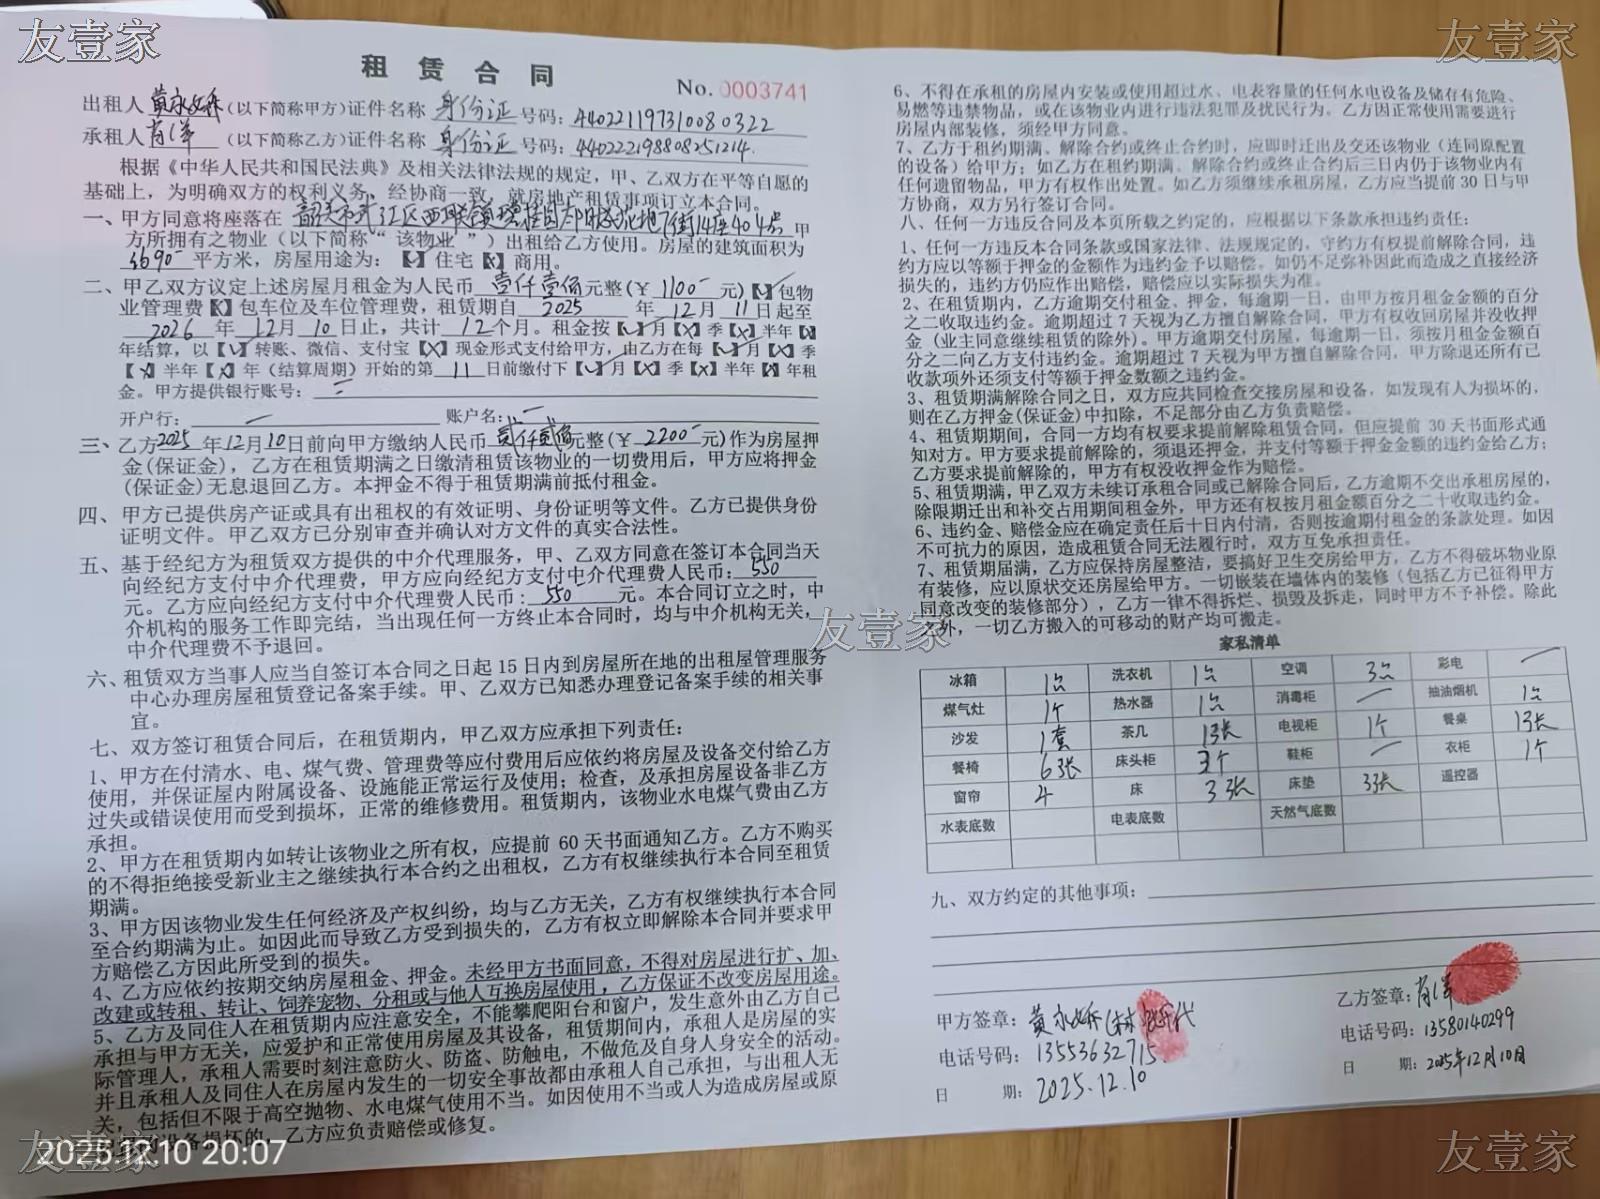 友壹家
友壹家
租 赁 合 同
No. 0003741
出租人 黄永娇 (以下简称甲方)证件名称 身份证 号码: 440221197310080322
承租人 (以下简称乙方)证件名称 身份证 号码: 440222198808251214.
根据《中华人民共和国民法典》及相关法律法规的规定，甲、乙双方在平等自愿的
基础上，为明确双方的权利义务，经协商一致，就房地产租赁事项订立本合同。
一、甲方同意将座落在 韶关市武江区西联镇碧桂园 7街14座404房 甲
方所拥有之物业（以下简称“该物业”）出租给乙方使用。房屋的建筑面积为
平方米，房屋用途为：【✓】住宅【X】商用。
二、甲乙双方议定上述房屋月租金为人民币 壹仟壹佰元整(￥ 1100- 元)【✓】包物
业管理费【X】包车位及车位管理费，租赁期自 2025 年 12 月 11 日起至
2026 年 12 月 10 日止，共计 12 个月。租金按【✓】月【X】季【X】半年【X】
年结算，以【✓】转账、微信、支付宝【X】现金形式支付给甲方，由乙方在每【✓】月【X】季
【X】半年【X】年（结算周期）开始的第 11 日前缴付下【✓】月【X】季【X】半年【X】年租
金。甲方提供银行账号：
开户行： 账户名：
三、乙方2025 年12月10日前向甲方缴纳人民币 贰仟贰佰元整(￥ 2200- 元)作为房屋押
金(保证金)，乙方在租赁期满之日缴清租赁该物业的一切费用后，甲方应将押金
(保证金)无息退回乙方。本押金不得于租赁期满前抵付租金。
四、甲方已提供房产证或具有出租权的有效证明、身份证明等文件。乙方已提供身份
证明文件。甲乙双方已分别审查并确认对方文件的真实合法性。
五、基于经纪方为租赁双方提供的中介代理服务，甲、乙双方同意在签订本合同当天
向经纪方支付中介代理费，甲方应向经纪方支付中介代理费人民币: 550
元。乙方应向经纪方支付中介代理费人民币: 550 元。本合同订立之时，中
介机构的服务工作即完结，当出现任何一方终止本合同时，均与中介机构无关，
中介代理费不予退回。
六、租赁双方当事人应当自签订本合同之日起 15 日内到房屋所在地的出租屋管理服务
中心办理房屋租赁登记备案手续。甲、乙双方已知悉办理登记备案手续的相关事
宜。
七、双方签订租赁合同后，在租赁期内，甲乙双方应承担下列责任：
1、甲方在付清水、电、煤气费、管理费等应付费用后应依约将房屋及设备交付给乙方
使用，并保证屋内附属设备、设施能正常运行及使用；检查，及承担房屋设备非乙方
过失或错误使用而受到损坏，正常的维修费用。租赁期内，该物业水电煤气费由乙方
承担。
2、甲方在租赁期内如转让该物业之所有权，应提前 60 天书面通知乙方。乙方不购买
的不得拒绝接受新业主之继续执行本合约之出租权，乙方有权继续执行本合同至租赁
期满。
3、甲方因该物业发生任何经济及产权纠纷，均与乙方无关，乙方有权继续执行本合同
至合约期满为止。如因此而导致乙方受到损失的，乙方有权立即解除本合同并要求甲
方赔偿乙方因此所受到的损失。
4、乙方应依约按期交纳房屋租金、押金。未经甲方书面同意，不得对房屋进行扩、加、
改建或转租、转让、饲养宠物、分租或与他人互换房屋使用，乙方保证不改变房屋用途。
5、乙方及同住人在租赁期内应注意安全，不能攀爬阳台和窗户，发生意外由乙方自己
承担与甲方无关，应爱护和正常使用房屋及其设备，租赁期间内，承租人是房屋的实
际管理人，承租人需要时刻注意防火、防盗、防触电，不做危及自身人身安全的活动。
并且承租人及同住人在房屋内发生的一切安全事故都由承租人自己承担，与出租人无
关，包括但不限于高空抛物、水电煤气使用不当。如因使用不当或人为造成房屋或原
设备损坏的，乙方应负责赔偿或修复。
6、不得在承租的房屋内安装或使用超过水、电表容量的任何水电设备及储存有危险、
易燃等违禁物品，或在该物业内进行违法犯罪及扰民行为。乙方因正常使用需要进行
房屋内部装修，须经甲方同意。
7、乙方于租约期满、解除合约或终止合约时，应即时迁出及交还该物业（连同原配置
的设备）给甲方；如乙方在租约期满、解除合约或终止合约后三日内仍于该物业内有
任何遗留物品，甲方有权作出处置。如乙方须继续承租房屋，乙方应当提前 30 日与甲
方协商，双方另行签订合同。
八、任何一方违反合同及本页所载之约定的，应根据以下条款承担违约责任：
1、任何一方违反本合同条款或国家法律、法规规定的，守约方有权提前解除合同，违
约方应以等额于押金的金额作为违约金予以赔偿。如仍不足弥补因此而造成之直接经济
损失的，违约方仍应作出赔偿，赔偿应以实际损失为准。
2、在租赁期内，乙方逾期交付租金、押金，每逾期一日，由甲方按月租金金额的百分
之二收取违约金。逾期超过 7 天视为乙方擅自解除合同，甲方有权收回房屋并没收押
金（业主同意继续租赁的除外）。甲方逾期交付房屋，每逾期一日，须按月租金金额百
分之二向乙方支付违约金。逾期超过 7 天视为甲方擅自解除合同，甲方除退还所有已
收款项外还须支付等额于押金数额之违约金。
3、租赁期满解除合同之日，双方应共同检查交接房屋和设备，如发现有人为损坏的，
则在乙方押金(保证金)中扣除，不足部分由乙方负责赔偿。
4、租赁期期间，合同一方均有权要求提前解除租赁合同，但应提前 30 天书面形式通
知对方。甲方要求提前解除的，须退还押金，并支付等额于押金金额的违约金给乙方；
乙方要求提前解除的，甲方有权没收押金作为赔偿。
5、租赁期满，甲乙双方未续订承租合同或已解除合同后，乙方逾期不交出承租房屋的，
除限期迁出和补交占用期间租金外，甲方还有权按月租金额百分之二十收取违约金。
6、违约金、赔偿金应在确定责任后十日内付清，否则按逾期付租金的条款处理。如因
不可抗力的原因，造成租赁合同无法履行时，双方互免承担责任。
7、租赁期届满，乙方应保持房屋整洁，要搞好卫生交房给甲方，乙方不得破坏物业原
有装修，应以原状交还房屋给甲方。一切嵌装在墙体内的装修（包括乙方已征得甲方
同意改变的装修部分），乙方一律不得拆烂、损毁及拆走，同时甲方不予补偿。除此
之外，一切乙方搬入的可移动的财产均可搬走。
友壹家
家私清单
冰箱 1台 洗衣机 1台 空调 3台 彩电
煤气灶 1个 热水器 1台 消毒柜 抽油烟机 1台
沙发 1套 茶几 1张 电视柜 1个 餐桌 1张
餐椅 6张 床头柜 3个 鞋柜 衣柜 1个
窗帘 4 床 3张 床垫 3张 遥控器
水表底数 电表底数 天然气底数
九、双方约定的其他事项：
甲方签章： 黄永娇 代
电话号码： 13553632715.
日 期： 2025.12.10
乙方签章：
电话号码：13580140299
日 期：2025年12月10日
友壹家
2025.12.10 20:07
友壹家